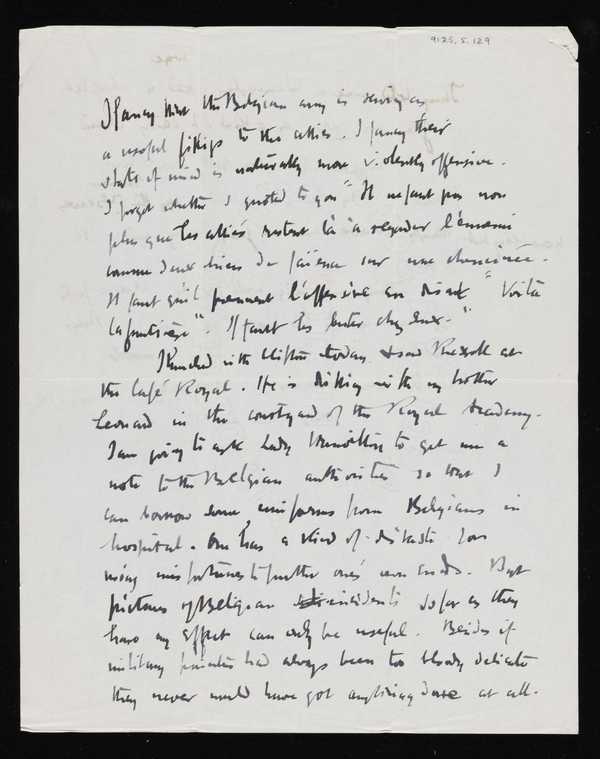 9125.5.129
I fancy that the Belgian army is serving as
a useful fillip to the allies. I fancy their
state of mind is naturally more violently offensive.
I forget whether I quoted to you "Il ne faut pas non
plus que les alliés restent là à regarder l'ennemi
comme deux chiens de faience sur une cheminée.
Il faut qu'il prennent l'offensive en disant "Voilà
la frontière". Il faut les buter chez eux."
I lunched with Clifton today & saw Russell at
the Café Royal. He is drilling with my brother
Leonard in the courtyard of the Royal Academy.
I am going to ask Lady to get me a
note to the Belgian authorities so that I
can borrow some uniforms from Belgians in
hospital. One has a kind of distaste for
using misfortunes to further one's own ends. But
pictures of Belgian incidents so far as they
have any effect can only be useful. Besides if
military painters had always been too bloody delicate
they never would have got anything done at all.